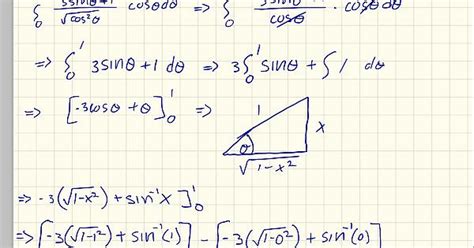 ∫₀ 3sinθ+1/√cos²θ cosθdθ => ∫₀ 3sinθ+1/cosθ · cosθdθ
=> ∫₀¹ 3sinθ+1 dθ => 3∫₀¹ sinθ + ∫ 1 dθ
=> [-3cosθ + θ]₀¹ => 1 x θ √1-x²
=> -3(√1-x²) + sin⁻¹x ]₀¹
=> [-3(√1-1²) + sin⁻¹(1)] - [-3(√1-0²) + sin⁻¹(0)]